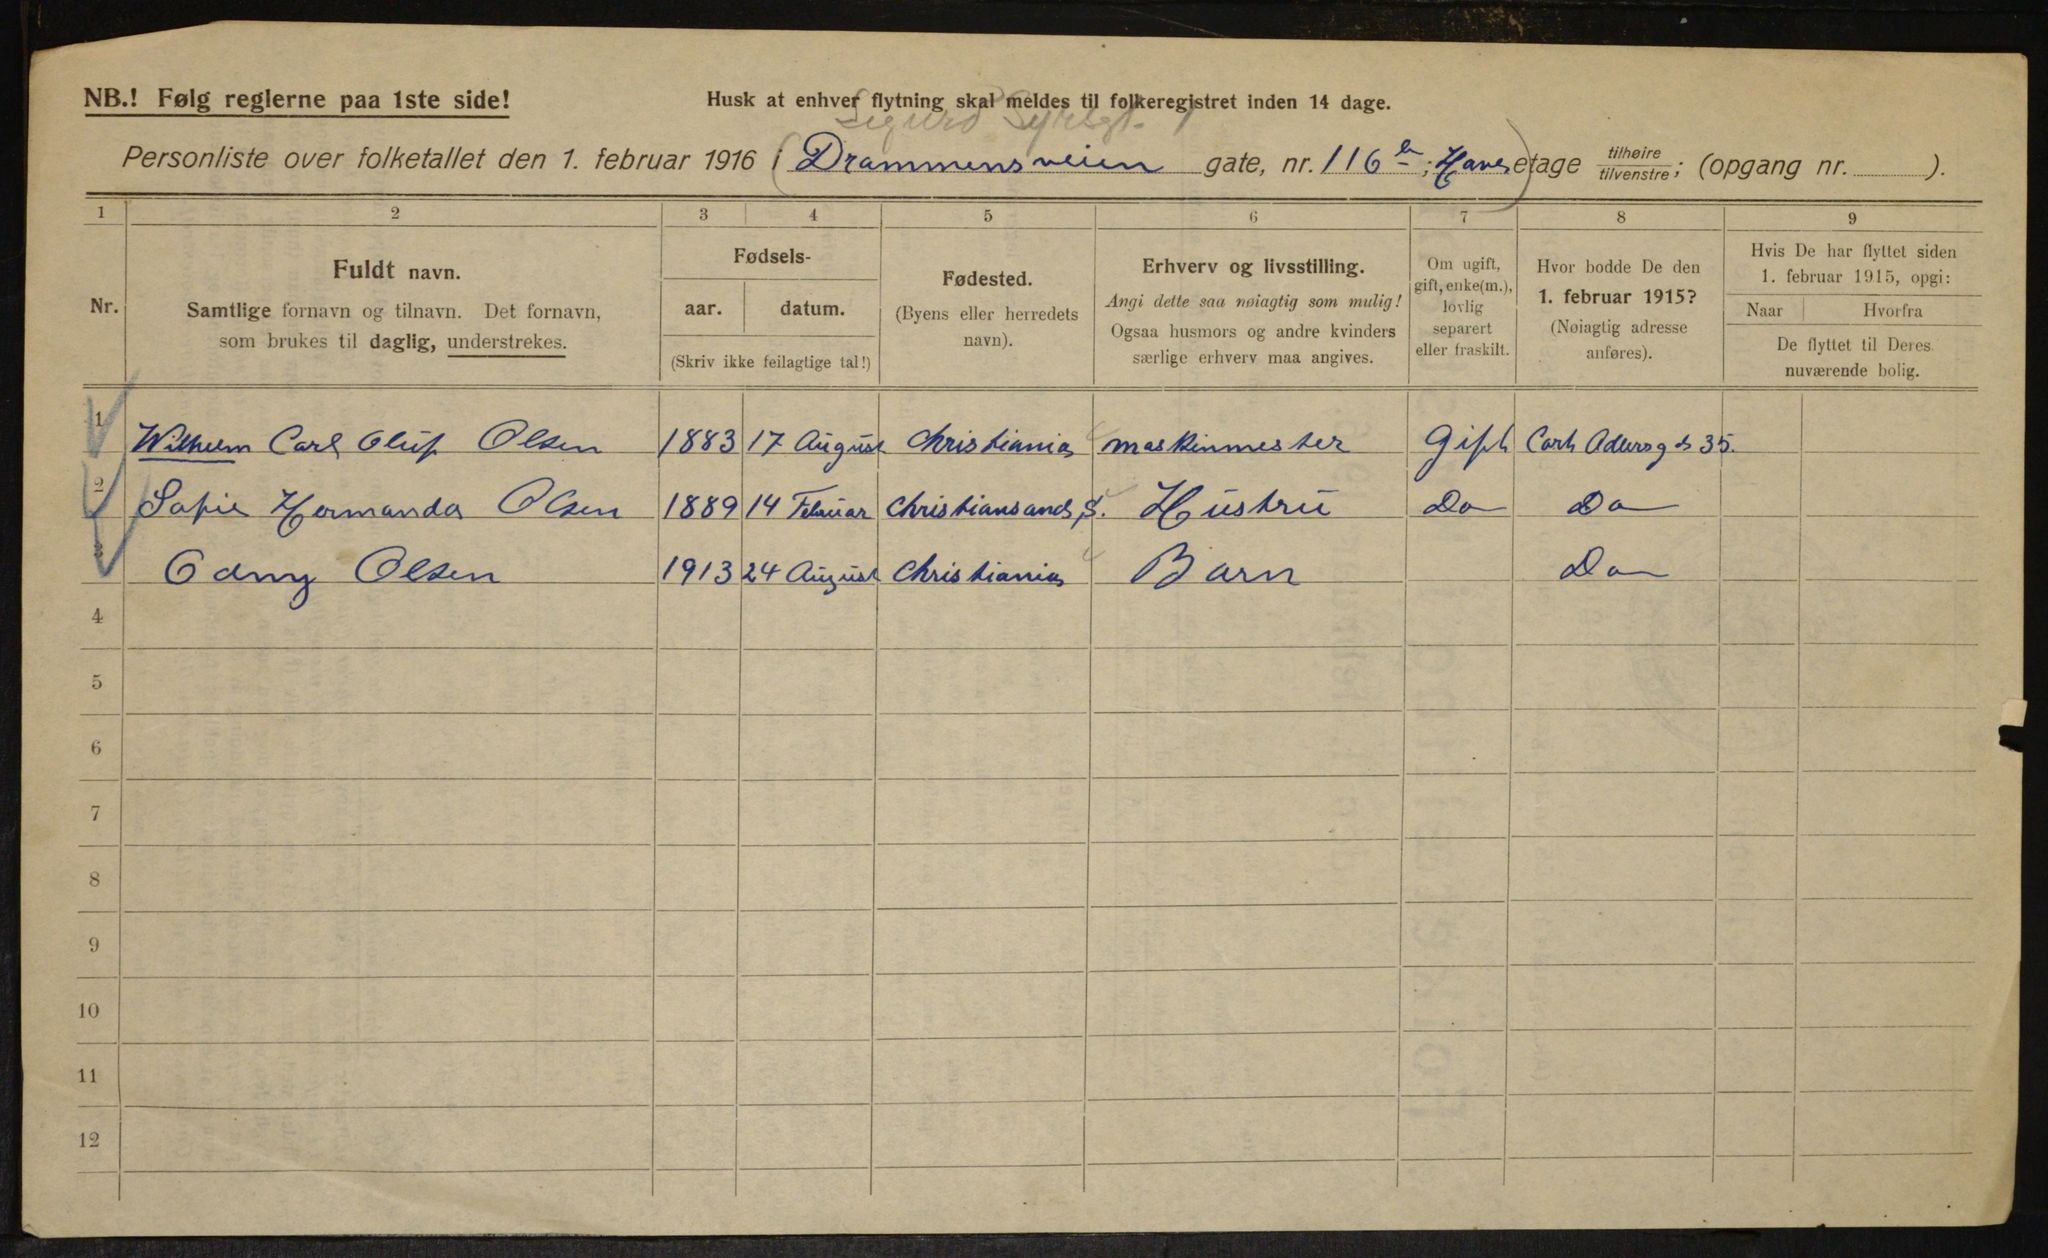 NB.! Følg reglerne paa 1ste side!
Husk at enhver flytning skal meldes til folkeregistret inden 14 dage.
Sigurd Syrsgt. 1
Personliste over folketallet den 1. februar 1916 i (Drammensveien gate, nr. 116 b; Have) etage tilhøire/tilvenstre; (opgang nr. ).
1 2 3 4 5 6 7 8 9
Nr.
Fuldt navn.
Samtlige fornavn og tilnavn. Det fornavn,
som brukes til daglig, understrekes.
Fødsels-
aar. datum.
(Skriv ikke feilagtige tal!)
Fødested.
(Byens eller herredets
navn).
Erhverv og livsstilling.
Angi dette saa nøiagtig som mulig!
Ogsaa husmors og andre kvinders
særlige erhverv maa angives.
Om ugift,
gift, enke(m.),
lovlig
separert
eller fraskilt.
Hvor bodde De den
1. februar 1915?
(Nøiagtig adresse
anføres).
Hvis De har flyttet siden
1. februar 1915, opgi:
Naar Hvorfra
De flyttet til Deres
nuværende bolig.
1 Wilhelm Carl Oluf Olsen 1883 17 August Christiania maskinmester Gift Carl Adlersgd 35.
2 Sofie Hermanda Olsen 1889 14 Februar Christiansand S. Hustru Do Do
3 Odny Olsen 1913 24 August Christiania Barn Do
4
5
6
7
8
9
10
11
12